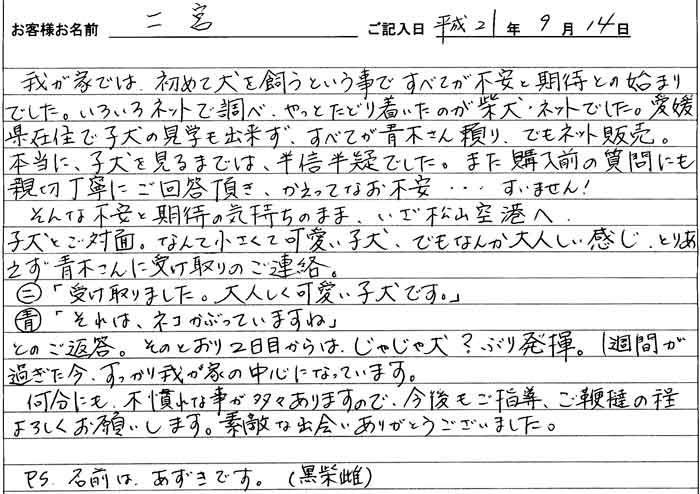 お客様お名前 二宮 ご記入日 平成21年9月14日
我が家では、初めて犬を飼うという事ですべてが不安と期待との始まり
でした。いろいろネットで調べ、やっとたどり着いたのが柴犬・ネットでした。愛媛
県在住で子犬の見学も出来ず、すべてが青木さん頼り、でもネット販売。
本当に、子犬を見るまでは、半信半疑でした。また購入前の質問にも
親切丁寧にご回答頂き、かえってなお不安・・・すいません!
そんな不安と期待の気持ちのまま、いざ松山空港へ.
子犬とご対面。なんて小さくて可愛い子犬、でもなんか大人しい感じ、とりあ
えず青木さんに受け取りのご連絡。
㊁「受け取りました。大人しく可愛い子犬です。」
青「それは、ネコかぶっていますね」
とのご返答。そのとおり2日目からは、じゃじゃ犬?ぶり発揮。1週間が
過ぎた今、すっかり我が家の中心になっています。
何分にも、不慣れな事が多々ありますので、今後もご指導、ご鞭撻の程
よろしくお願いします。素敵な出会いありがとうございました。
P.S. 名前は、あずきです。(黒柴雌)